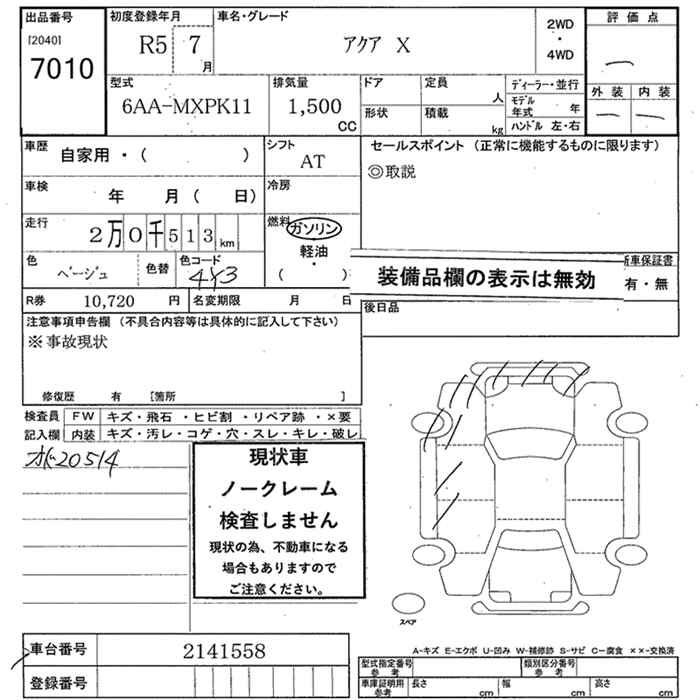 出品番号
[2040]
7010
初度登録年月
R5 7
月
車名・グレード
アクア X
2WD
・
4WD
評価点
外装 内装
型式
6AA-MXPK11
排気量
1,500
CC
ドア
形状
定員
人
積載
kg
ディーラー・並行
モデル
年式 年
ハンドル 左・右
車歴
自家用・( )
シフト
AT
セールスポイント (正常に機能するものに限ります)
◎取説
車検
年 月( 日)
冷房
走行
2万0千513km
燃料
ガソリン
軽油
・
( )
色
ベージュ
色替
色コード
4Y3
装備品欄の表示は無効
新車保証書
有・無
R券 10,720 円
名変期限 月 日
後日品
注意事項申告欄 (不具合内容等は具体的に記入して下さい)
※事故現状
修復歴 有 [箇所 ]
検査員 FW キズ・飛石・ヒビ割・リペア跡・×要
記入欄 内装 キズ・汚レ・コゲ・穴・スレ・キレ・破レ
20514
現状車
ノークレーム
検査しません
現状の為、不動車になる
場合もありますので
ご注意ください。
スペア
車台番号 2141558
登録番号
A-キズ E-エクボ U-凹み W-補修跡 S-サビ C-腐食 ××-交換済
型式指定番号
参考
類別区分番号
参考
車庫証明用
参考
長さ cm
幅 cm
高さ cm